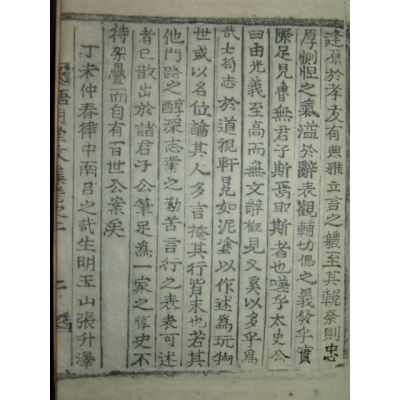 逢原於孝友有典雅立言之軆至其報祭則忠
厚惻怛之氣溢於辭表觀輔切偲之義發乎實
際足見魯無君子斯焉取斯者也嗟乎太史公
曰由光義至高而無文辭槪見又奚以多乎爲
哉士尙志於道視軒冕如泥塗以作述爲玩物
世或以名位論其人多言掩其行皆末也若其
他門路之醇深志業之勤苦言行之表表可述
者已散出於諸君子公筆足爲一家之惇史不
待架疊而自有百世公案矣
丁未仲春律中南呂之哉生明玉山張升澤